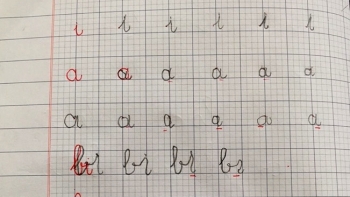 i i i i i i
a a a a a a
a a a a a a
bri bri bri bri